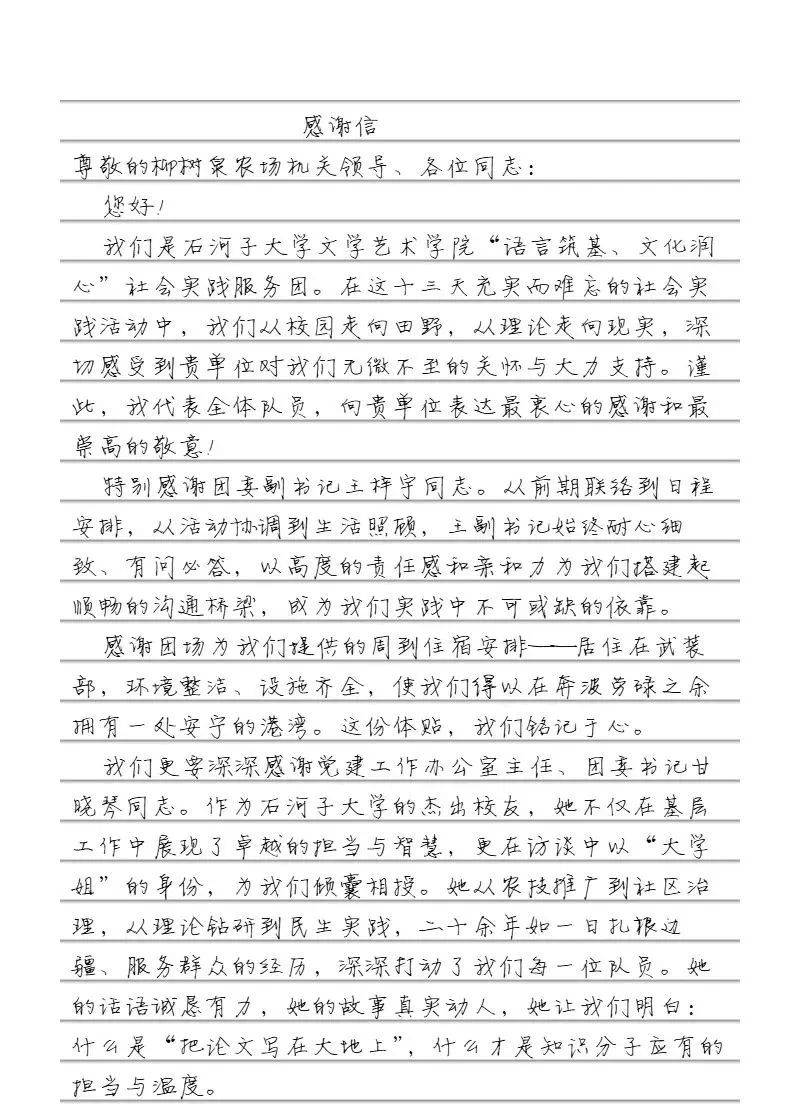 感谢信
尊敬的柳树泉农场机关领导、各位同志：
您好！
我们是石河子大学文学艺术学院“语言筑基、文化润
心”社会实践服务团。在这十三天充实而难忘的社会实
践活动中，我们从校园走向田野，从理论走向现实，深
切感受到贵单位对我们无微不至的关怀与大力支持。谨
此，我代表全体队员，向贵单位表达最衷心的感谢和最
崇高的敬意！
特别感谢团委副书记王梓宇同志。从前期联络到日程
安排，从活动协调到生活照顾，王副书记始终耐心细
致、有问必答，以高度的责任感和亲和力为我们搭建起
顺畅的沟通桥梁，成为我们实践中不可或缺的依靠。
感谢团场为我们提供的周到住宿安排——居住在武装
部，环境整洁、设施齐全，使我们得以在奔波劳碌之余
拥有一处安宁的港湾。这份体贴，我们铭记于心。
我们更要深深感谢党建工作办公室主任、团委书记甘
晓琴同志。作为石河子大学的杰出校友，她不仅在基层
工作中展现了卓越的担当与智慧，更在访谈中以“大学
姐”的身份，为我们倾囊相授。她从农技推广到社区治
理，从理论钻研到民生实践，二十余年如一日扎根边
疆、服务群众的经历，深深打动了我们每一位队员。她
的话语诚恳有力，她的故事真实动人，她让我们明白：
什么是“把论文写在大地上”，什么才是知识分子应有的
担当与温度。